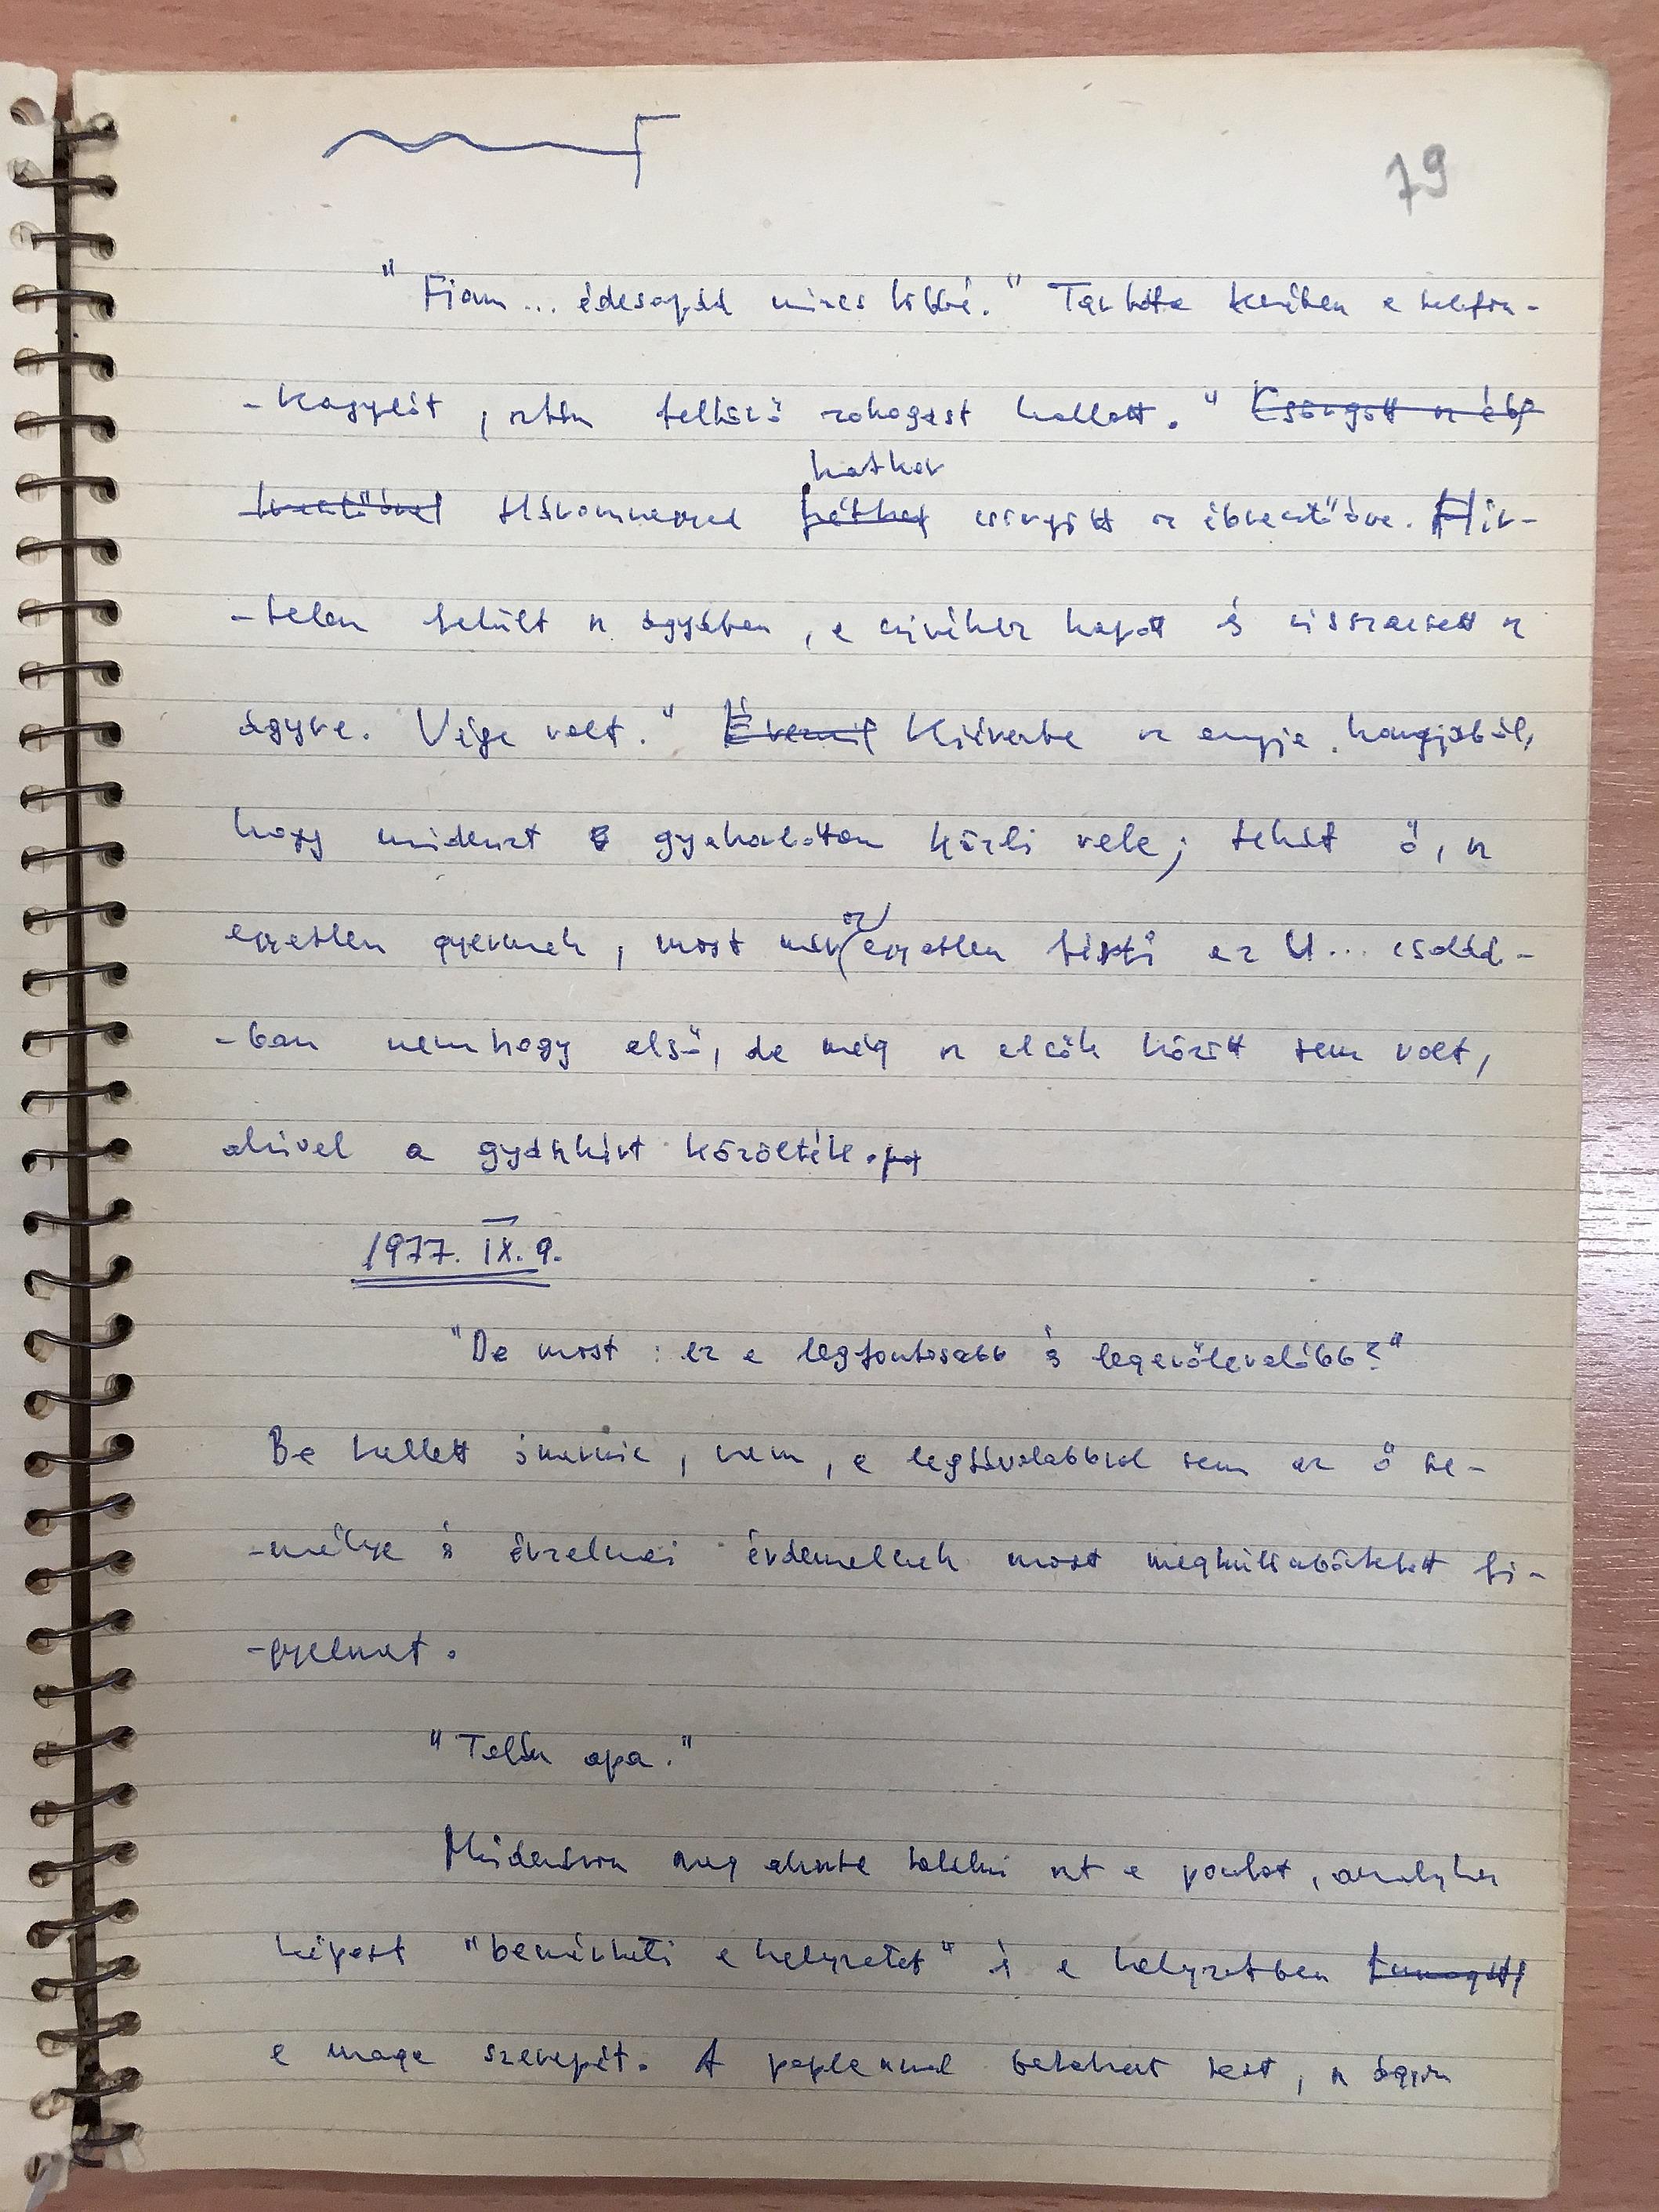 79
"Fiam... édesapád nincs többé." Tartotta kezében a telefon-
-kagylót, aztán feltörő zokogást hallott." Csörgött az éb-
hatkor
resztőóra Háromnegyed hétkor csörgött az ébresztőóra. Hir-
-telen felült az ágyában, a szívéhez kapott és visszaesett az
ágyra. Vége volt." Kiérezte az anyja hangjából,
hogy mindezt gyakorlottan közli vele; tehát ő, az
az
egyetlen gyermek, most már egyetlen férfi az U... család-
-ban nemhogy első, de még az elsők között sem volt,
akivel a gyászhírt közölték.
1977. IX. 9.
"De most: ez a legfontosabb és legerőlevalóbb?"
Be kellett ismernie, nem, a legtávolabbról sem az ő sze-
-mélye és érzelmei érdemelnek most megkülönböztetett fi-
-gyelmet.
"Talán apa."
Mindenáron meg akarta találni azt a pontot, amelyhez
képest "bemérheti a helyzetet" és a helyzetben
a maga szerepét. A paplannal betakart test, az ágyon